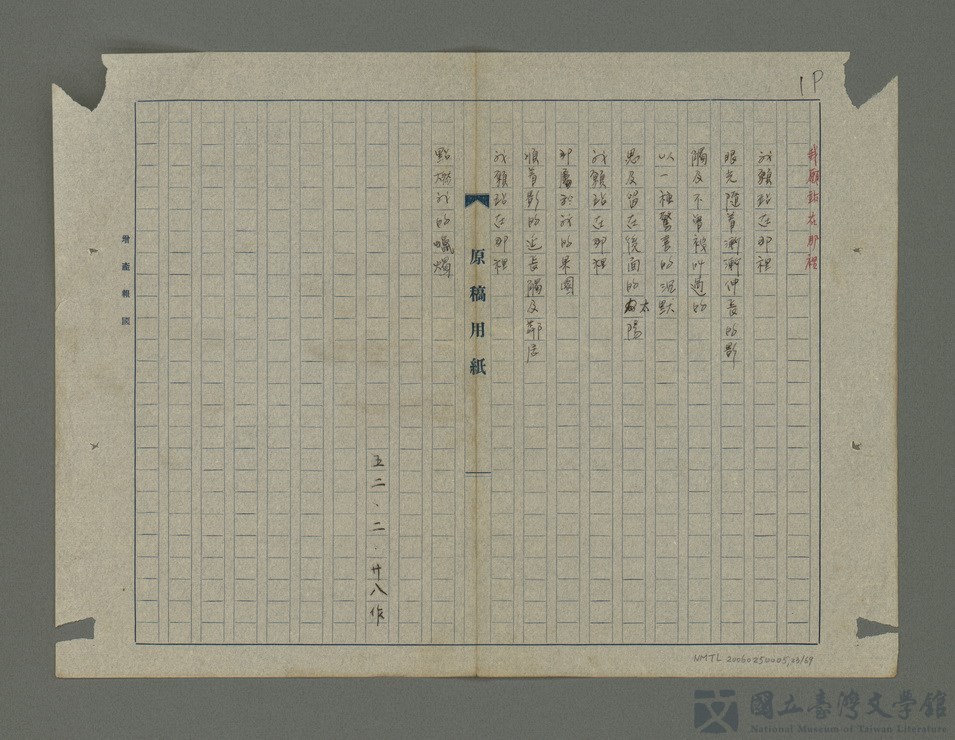 1P
我願站在那裡
我願站在那裡
眼光隨着漸漸伸長的影
觸及不曾被叫過的
以一種驚喜的沉默
思及留在後面的太陽
我願站在那裡
那屬於我的果園
順着影的生長觸及鄰居
我願站在那裡
點燃我的蠟燭
五二、二.廿八作
原稿用紙
增產報國
NMTL 20060250005,23/69
國立臺灣文學館
National Museum of Taiwan Literature